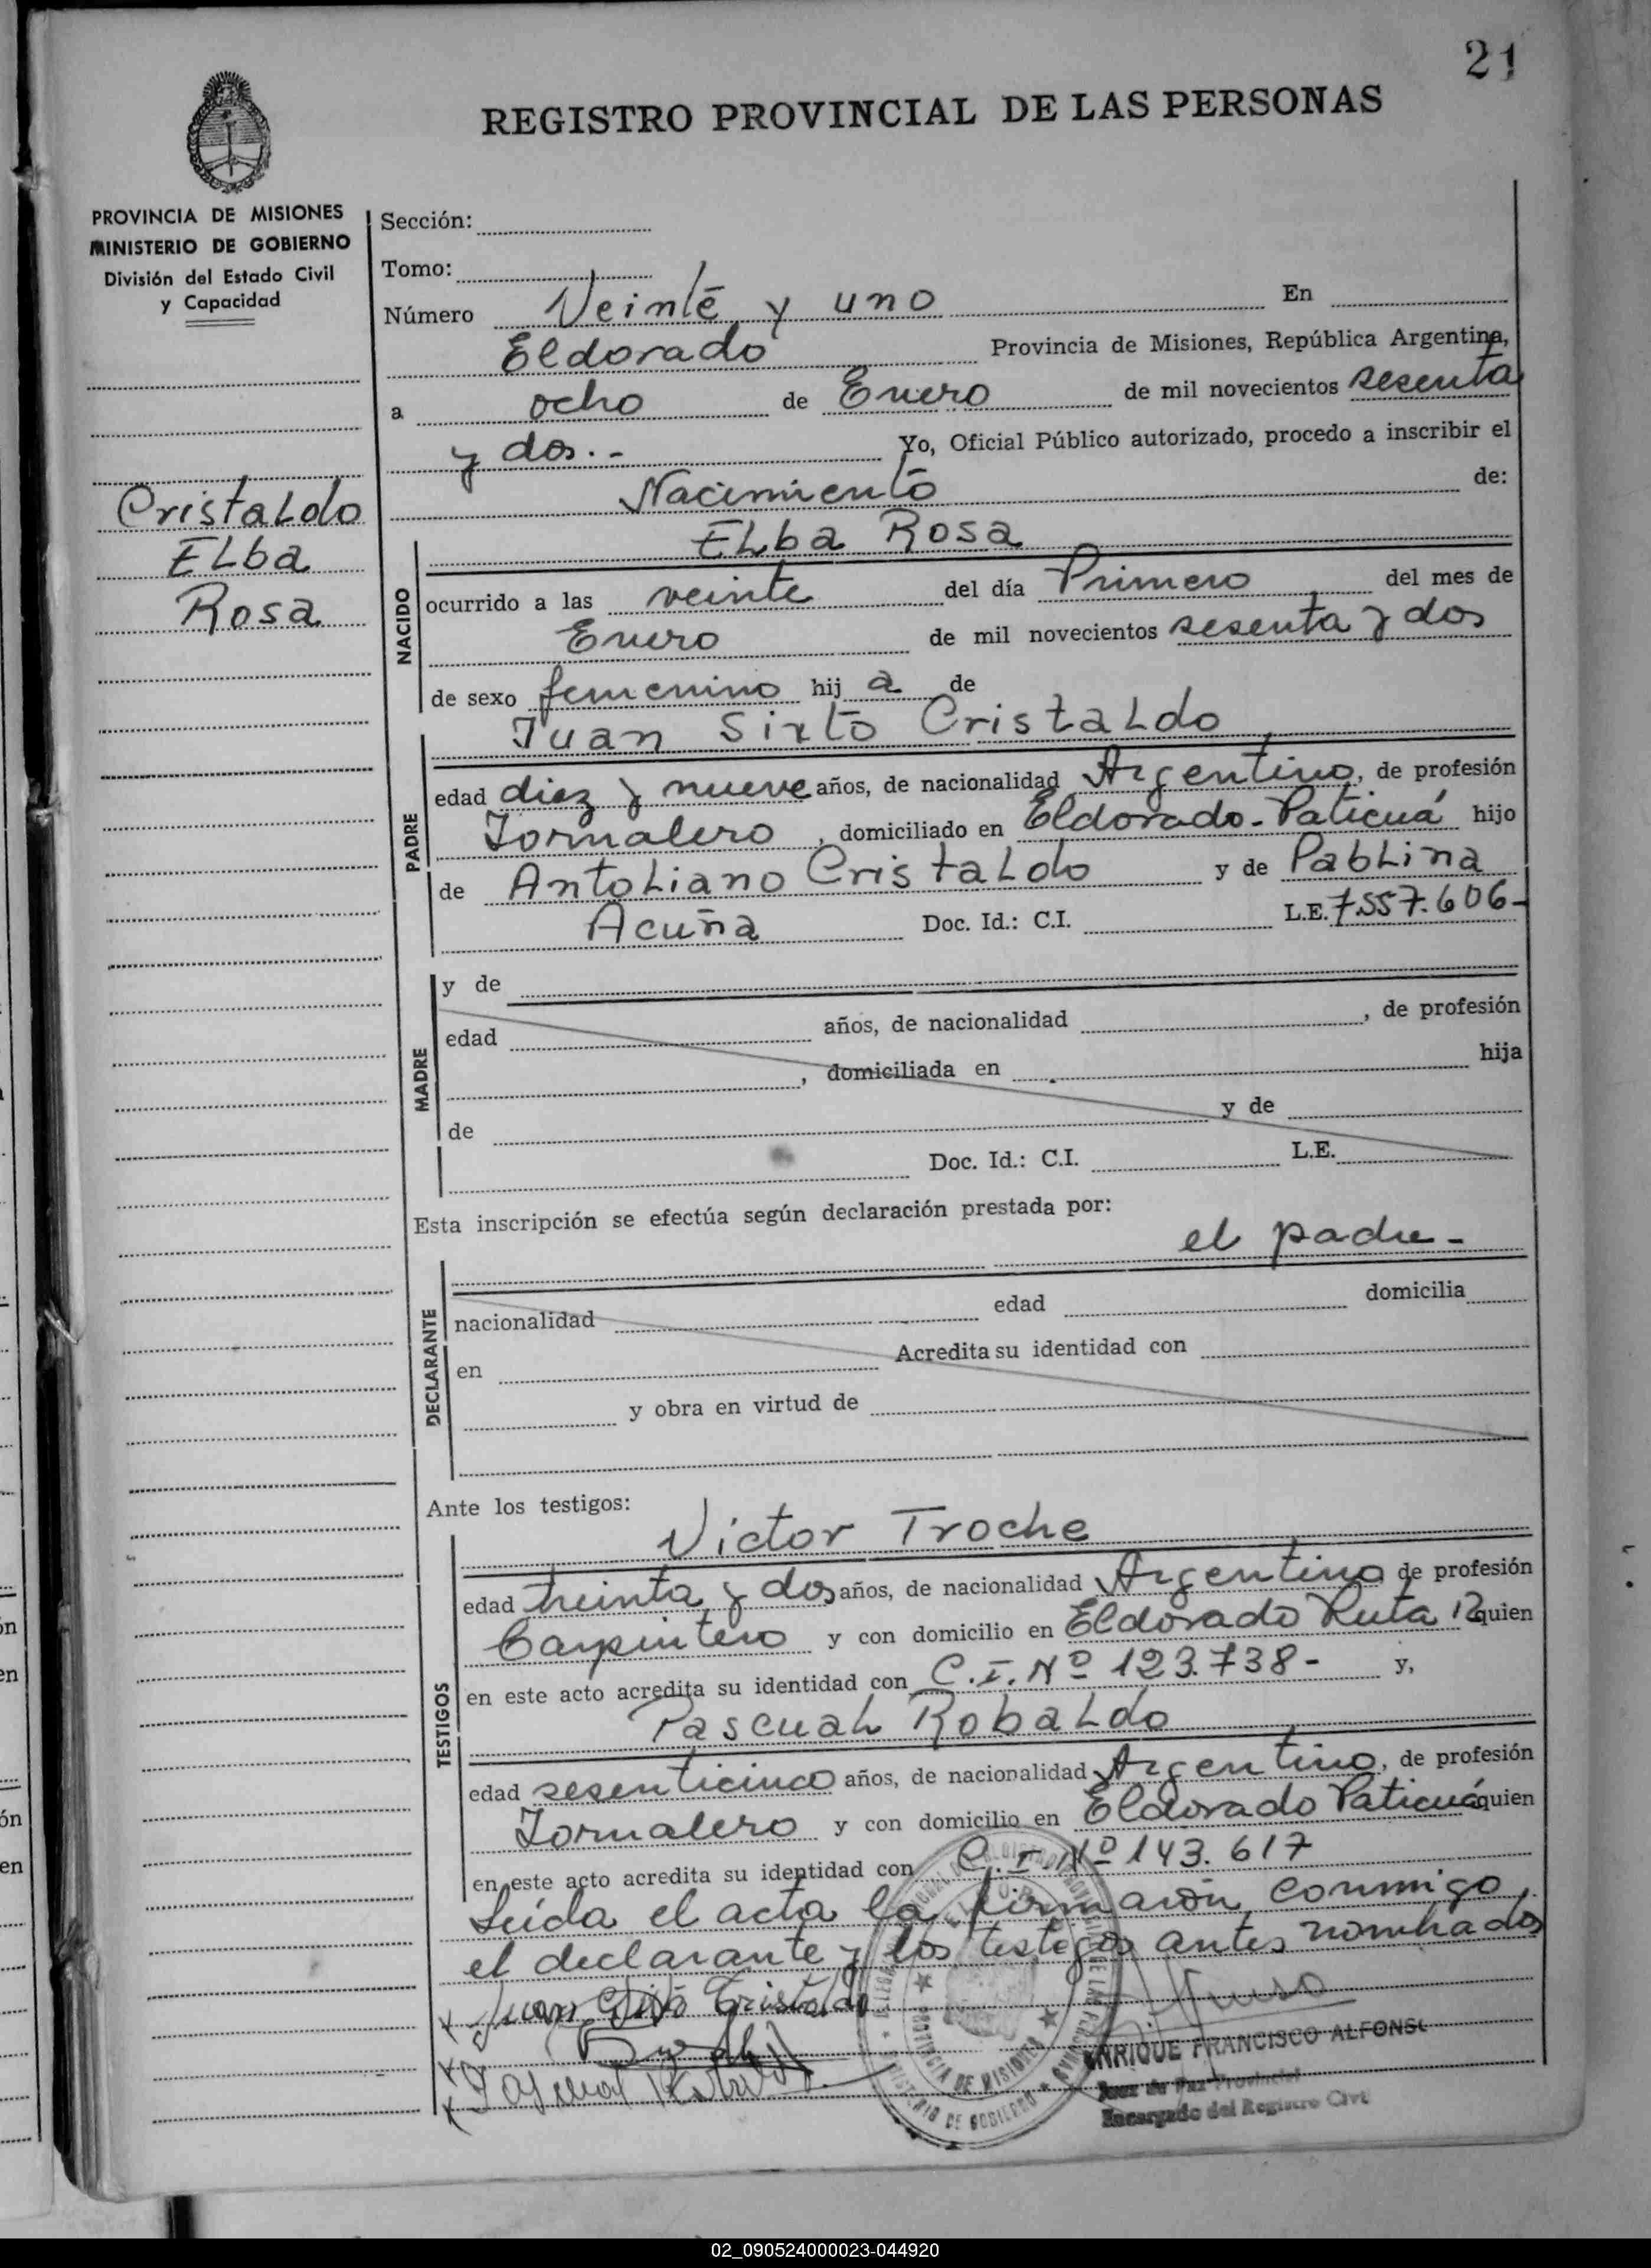 21
REGISTRO PROVINCIAL DE LAS PERSONAS
PROVINCIA DE MISIONES
MINISTERIO DE GOBIERNO
División del Estado Civil
y Capacidad
Cristaldo
Elba
Rosa
Sección:
Tomo:
Número Veinte y uno En
Eldorado Provincia de Misiones, República Argentina,
a ocho de Enero de mil novecientos sesenta
y dos.- Yo, Oficial Público autorizado, procedo a inscribir el
Nacimiento de:
Elba Rosa
NACIDO
ocurrido a las veinte del día Primero del mes de
Enero de mil novecientos sesenta y dos
de sexo femenino hij a de
Juan Sixto Cristaldo
PADRE
edad diez y nueve años, de nacionalidad Argentino, de profesión
Jornalero, domiciliado en Eldorado-Paticuá hijo
de Antoliano Cristaldo y de Pablina
Acuña Doc. Id.: C.I. L.E. 7.557.606-
MADRE
y de
edad años, de nacionalidad , de profesión
, domiciliada en hija
de y de
Doc. Id.: C.I. L.E.
Esta inscripción se efectúa según declaración prestada por:
el padre-
DECLARANTE
nacionalidad edad domicilia
en Acredita su identidad con
y obra en virtud de
Ante los testigos:
Victor Troche
TESTIGOS
edad treinta y dos años, de nacionalidad Argentino de profesión
Carpintero y con domicilio en Eldorado Ruta 12 quien
en este acto acredita su identidad con C.I. Nº 123.738- y,
Pascual Robaldo
edad sesenticinco años, de nacionalidad Argentino, de profesión
Jornalero y con domicilio en Eldorado Paticuá quien
en este acto acredita su identidad con C.I. Nº 143.617
Leida el acta la firmaron conmigo,
el declarante y los testigos antes nombrados
Juan Sixto Cristaldo
PROVINCIA DE MISIONES
MINISTERIO DE GOBIERNO
ENRIQUE FRANCISCO ALFONSO
Juez de Paz Provincial
Encargado del Registro Civil
02_090524000023-044920